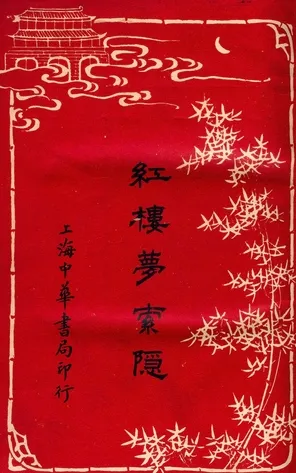 紅樓夢索隐
上海中華書局印行